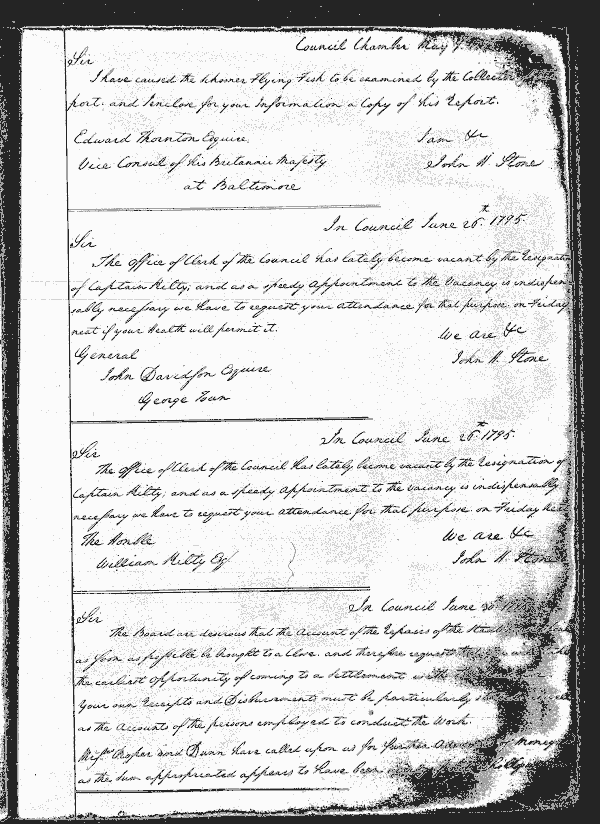 Council Chamber May 9.
Sir
I have caused the Schooner Flying Fish to be examined by the Collector
port. and I inclose for your Information a Copy of his Report.
Edward Thornton Esquire. I am &c
Vice Consul of his Britannic Majesty John H Stone
at Baltimore
In Council June 26th 1795
Sir
The Office of Clerk of the Council has lately become vacant by the Resignation
of Captain Kilty; and as a speedy Appointment to the Vacancy is indispen
sably necessary we have to request your attendance for that purpose on Friday
next if your Health will permit it. We are &c
General John H. Stone
John Davidson Esquire
George Town
In Council June 26th 1795.
Sir
The Office of Clerk of the Council has lately become vacant by the Resignation of
Captain Kilty; and as a speedy Appointment to the vacancy is indispensably
necessary we have to request your attendance for that purpose on Friday next
The Honble We are &c
William Kilty Esqr John H. Stone
In Council June 30
Sir
The Board are desirous that the Account of the Repairs of the
as soon as possible be brought to a Close. and therefore request
the earliest opportunity of coming to a settlement with
Your own Receipts and Disbursements must be particularly
as the Accounts of the persons employed to conduct the Work
Messrs Cooper and Dunn have called upon us for further money
as the sum appropriated appears to have been